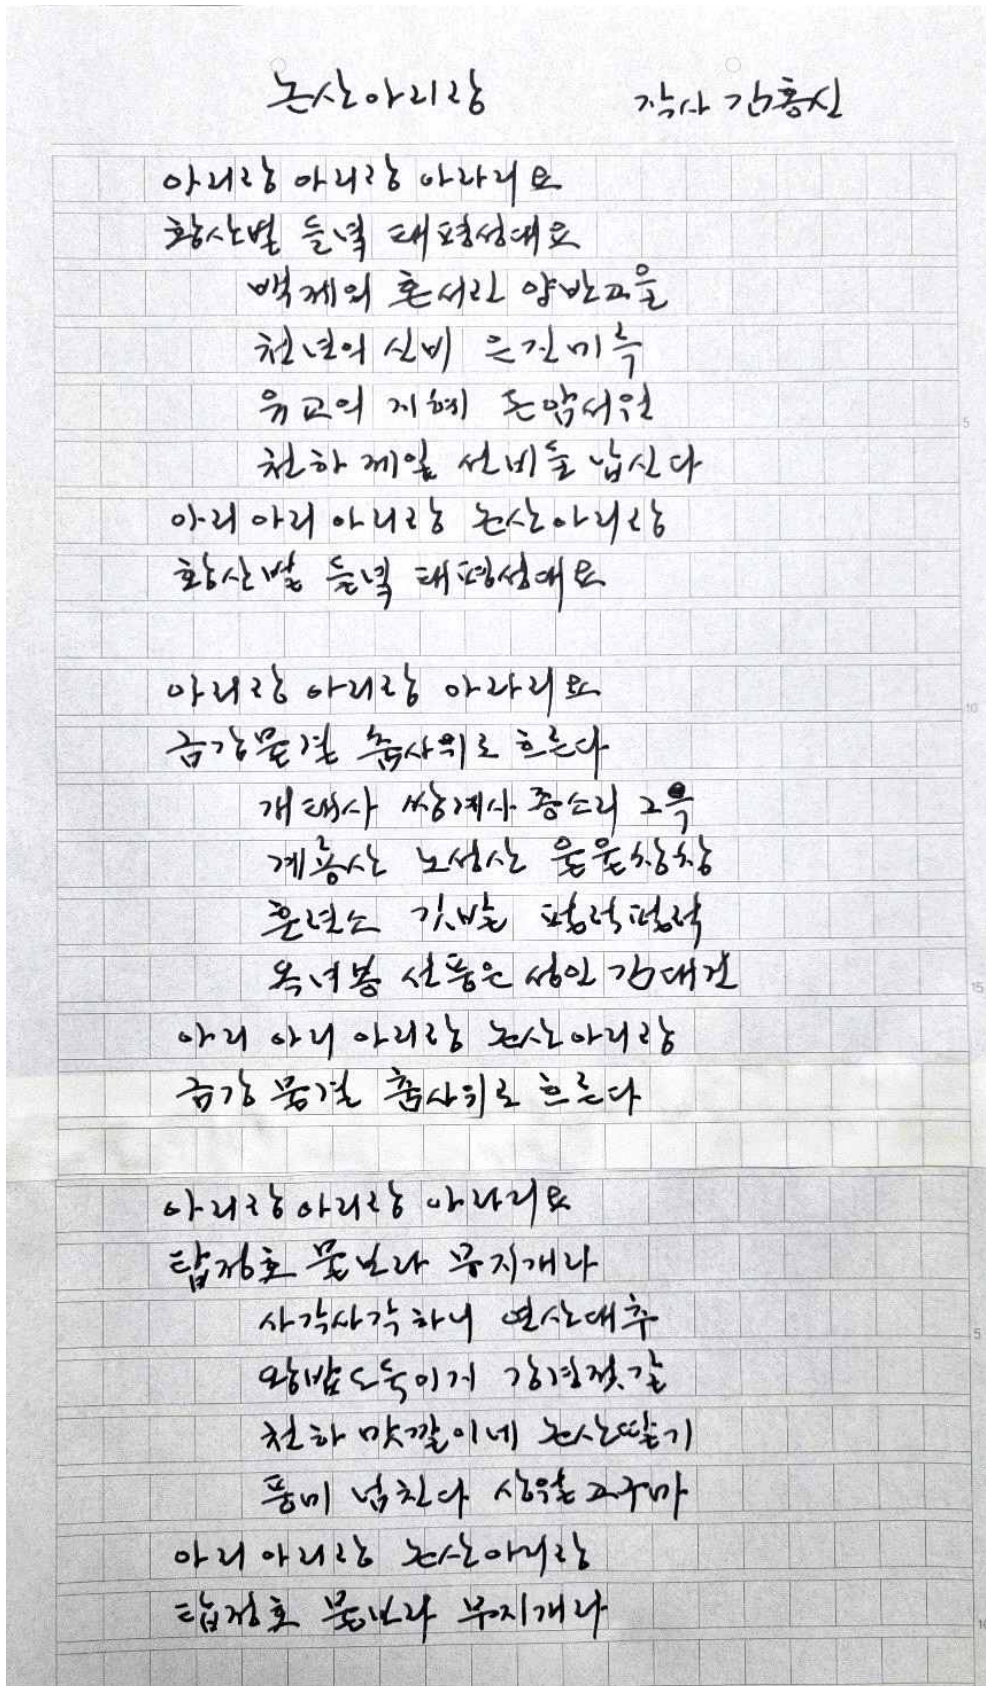 논산아리랑 작사 김홍신
아리랑 아리랑 아라리요
황산벌 들녘 태평성대요
백제의 혼서린 양반고을
천년의 신비 은진미륵
유교의 지혜 돈암서원
천하제일 선비들 납신다
아리아리 아리랑 논산아리랑
황산벌 들녘 태평성대요
아리랑 아리랑 아라리요
금강물결 춤사위로 흐른다
개태사 쌍계사 종소리 그윽
계룡산 노성산 울울창창
훈련소 깃발 펄럭펄럭
옥녀봉 선풍은 성인 김대건
아리 아리 아리랑 논산아리랑
금강 물결 춤사위로 흐른다
아리랑 아리랑 아라리요
탑정호 물보라 무지개라
사각사각 하니 연산대추
왕밥도둑이지 강경젓갈
천하 맛깔이네 논산딸기
풍미 넘친다 상월고구마
아리 아리랑 논산아리랑
탑정호 물보라 무지개라
5
10
15
5
10